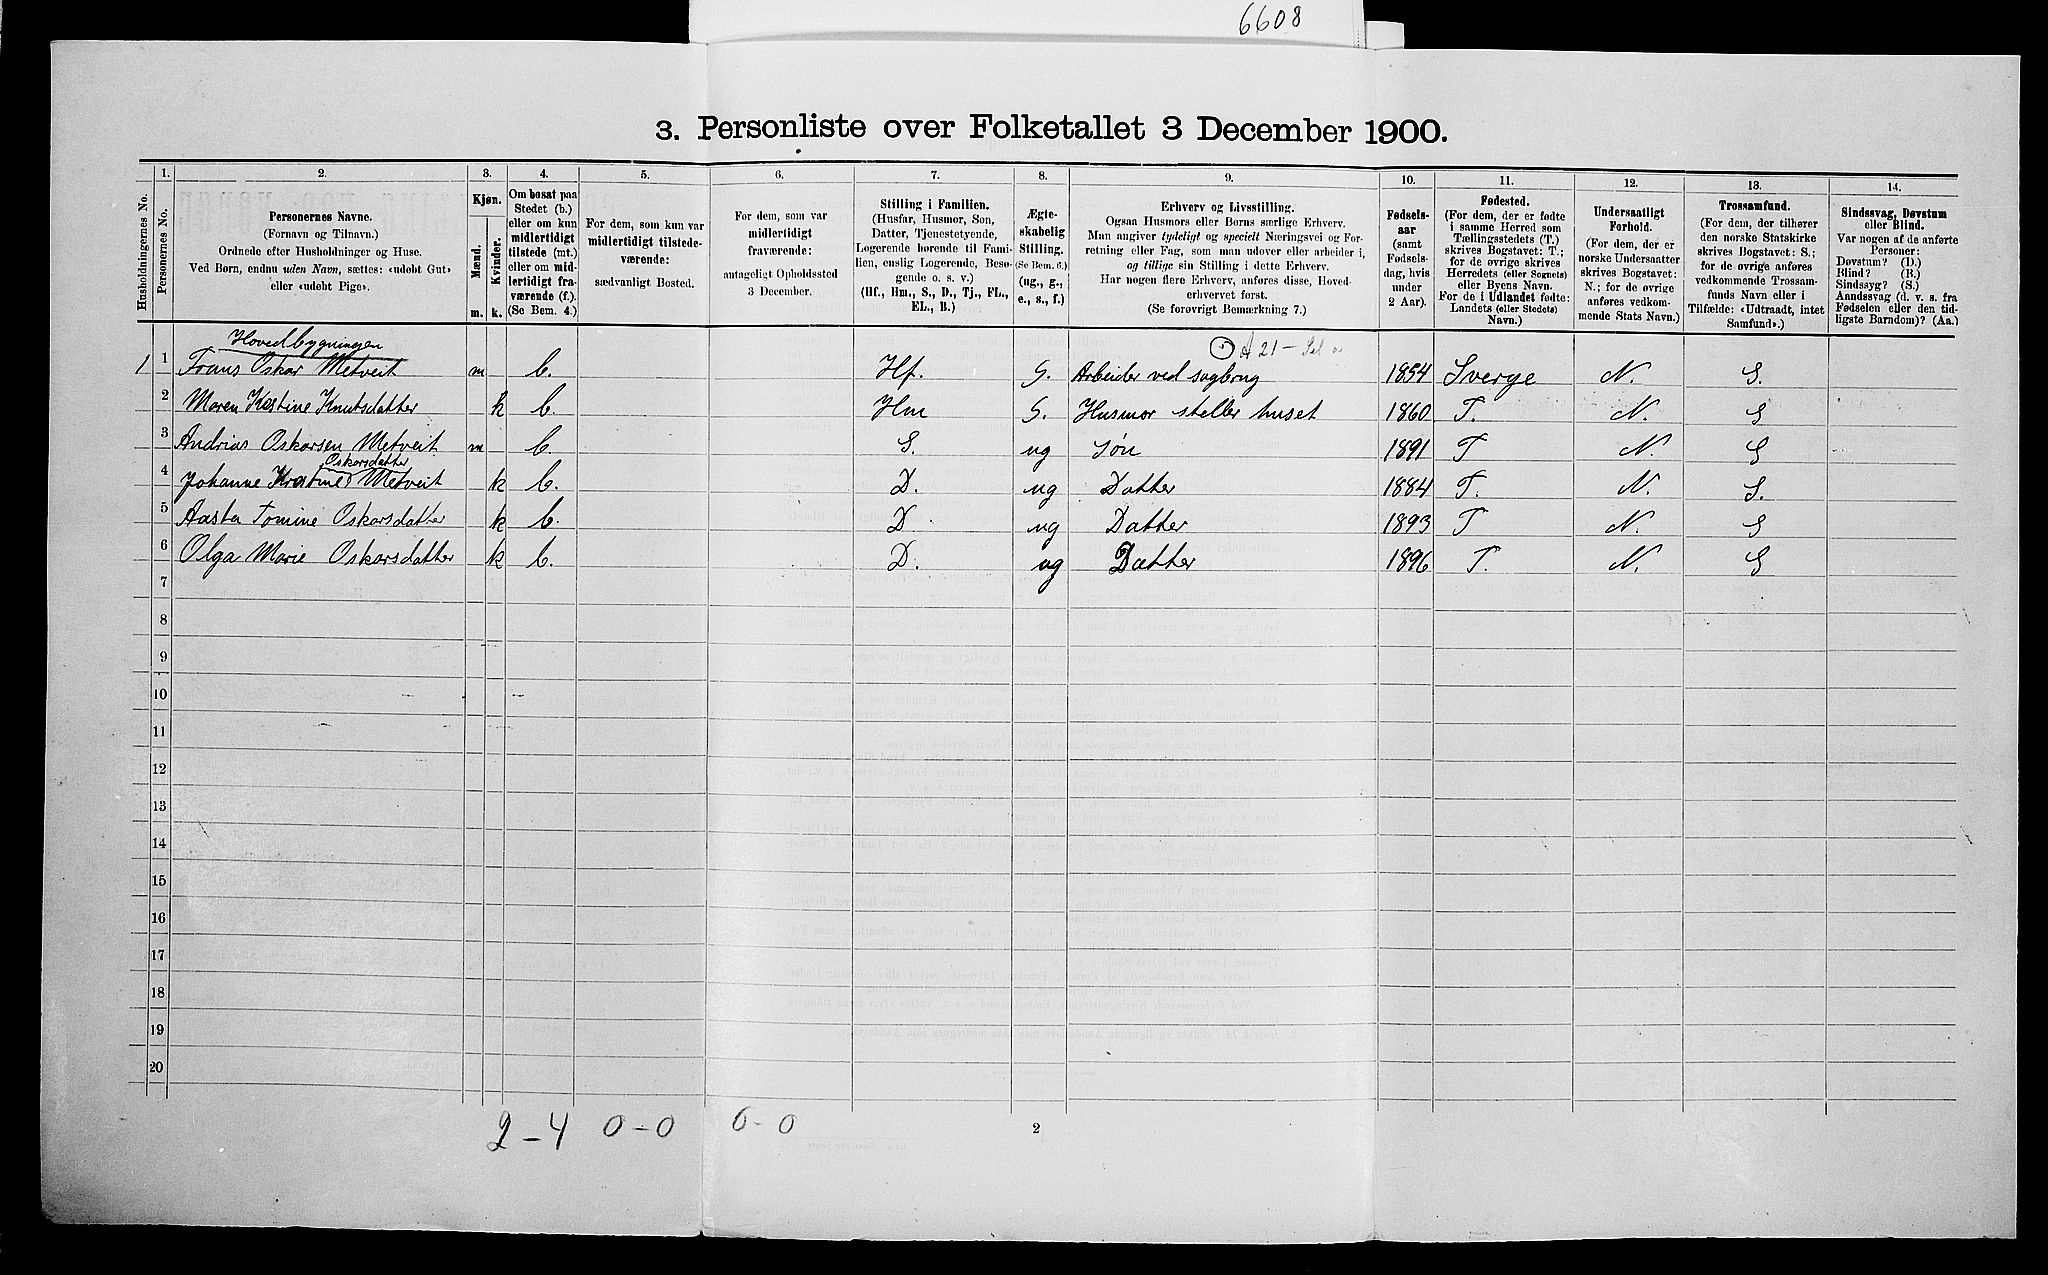 6608
3. Personliste over Folketallet 3 December 1900.
Husholdningernes No.
1.
Personernes No.
2.
Personernes Navne.
(Fornavn og Tilnavn.)
Ordnede efter Husholdninger og Huse.
Ved Børn, endnu uden Navn, sættes: «udøbt Gut»
eller «udøbt Pige».
3.
Kjøn.
Mænd.
Kvinder.
m. k.
4.
Om bosat paa
Stedet (b.)
eller om kun
midlertidigt
tilstede (mt.)
eller om mid-
lertidigt fra-
værende (f.).
(Se Bem. 4.)
5.
For dem, som kun var
midlertidigt tilstede-
værende:
sædvanligt Bosted.
6.
For dem, som var
midlertidigt
fraværende:
antageligt Opholdssted
3 December.
7.
Stilling i Familien.
(Husfar, Husmor, Søn,
Datter, Tjenestetyende,
Logerende hørende til Fami-
lien, enslig Logerende, Besø-
gende o. s. v.)
(Hf., Hm., S., D., Tj., FL.,
EL., B.)
8.
Ægte-
skabelig
Stilling.
(Se Bem. 6.)
(ug., g.,
e., s., f.)
9.
Erhverv og Livsstilling.
Ogsaa Husmors eller Børns særlige Erhverv.
Man angiver tydeligt og specielt Næringsvei og For-
retning eller Fag, som man udøver eller arbeider i,
og tillige sin Stilling i dette Erhverv.
Har nogen flere Erhverv, anføres disse, Hoved-
erhvervet først.
(Se forøvrigt Bemærkning 7.)
10.
Fødsels-
aar
(samt
Fødsels-
dag, hvis
under
2 Aar).
11.
Fødested.
(For dem, der er fødte
i samme Herred som
Tællingsstedets (T.)
skrives Bogstavet: T.;
for de øvrige skrives
Herredets (eller Sognets)
eller Byens Navn.
For de i Udlandet fødte:
Landets (eller Stedets)
Navn.)
12.
Undersaatligt
Forhold.
(For dem, der er
norske Undersaatter
skrives Bogstavet:
N.; for de øvrige
anføres vedkom-
mende Stats Navn.)
13.
Trossamfund.
(For dem, der tilhører
den norske Statskirke
skrives Bogstavet: S.;
for de øvrige anføres
vedkommende Trossam-
funds Navn eller i
Tilfælde: «Udtraadt, intet
Samfund».)
14.
Sindssvag, Døvstum
eller Blind.
Var nogen af de anførte
Personer:
Døvstum? (D.)
Blind? (B.)
Sindssyg? (S.)
Aandssvag (d. v. s. fra
Fødselen eller den tid-
ligste Barndom)? (Aa.)
Hovedbygningen
A 21
1 1 Frans Oskar Metveit m b. Hf. G. Arbeider ved sagbrug 1854 Sverge N. S.
2 Maren Kestine Knutsdatter k b. Hm G. Husmor steller huset 1860 T. N. S
3 Andrias Oskarsen Metveit m b. S. ug Søn 1891 T N. S
Oskarsdatter
4 Johanne Kristine Metveit k b. D. ug Datter 1884 T. N. S.
5 Aasta Tomine Oskarsdatter k b. D. ug Datter 1893 T N. S
6 Olga Marie Oskarsdatter k b. D. ug Datter 1896 T. N. S
7
8
9
10
11
12
13
14
15
16
17
18
19
20
2-4 0-0 0-0
2